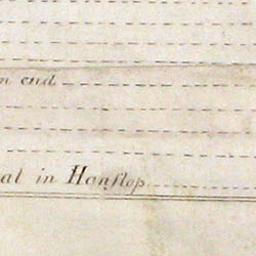 n end
al in Hanslop